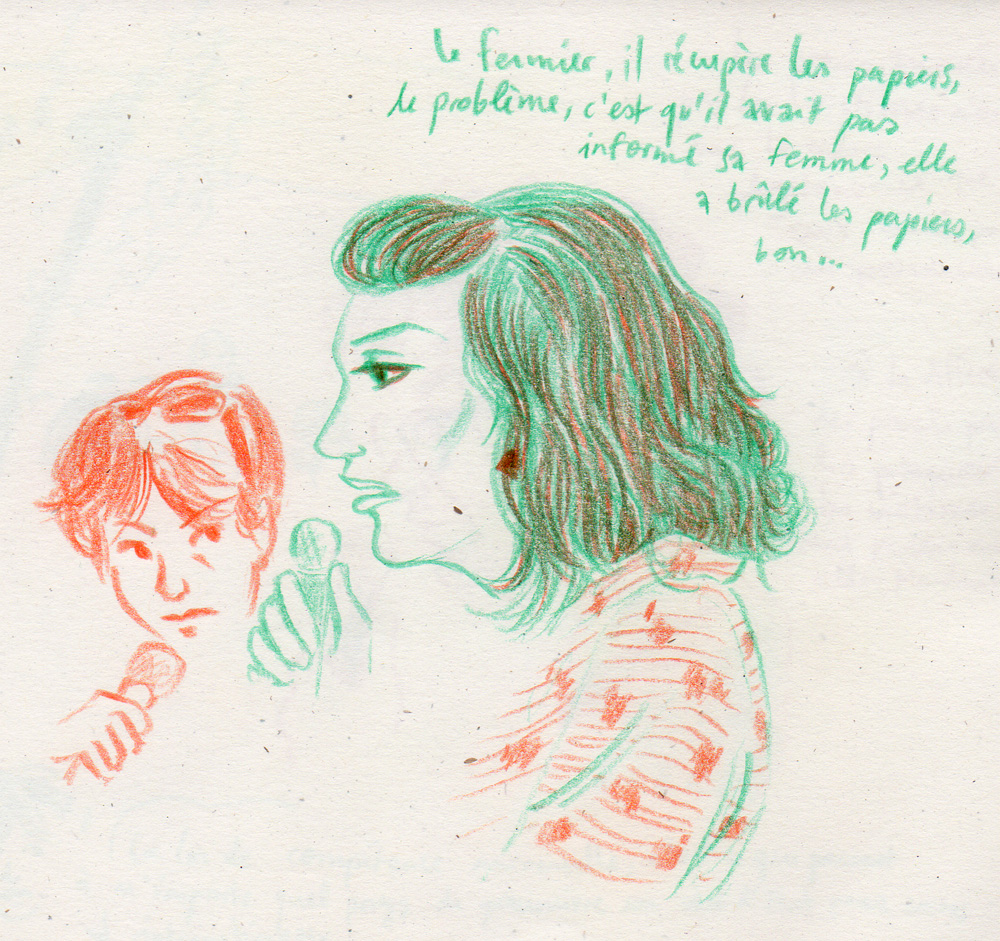 le fermier, il récupère les papiers,
le problème, c'est qu'il avait pas
informé sa femme, elle
a brûlé les papiers,
bon...